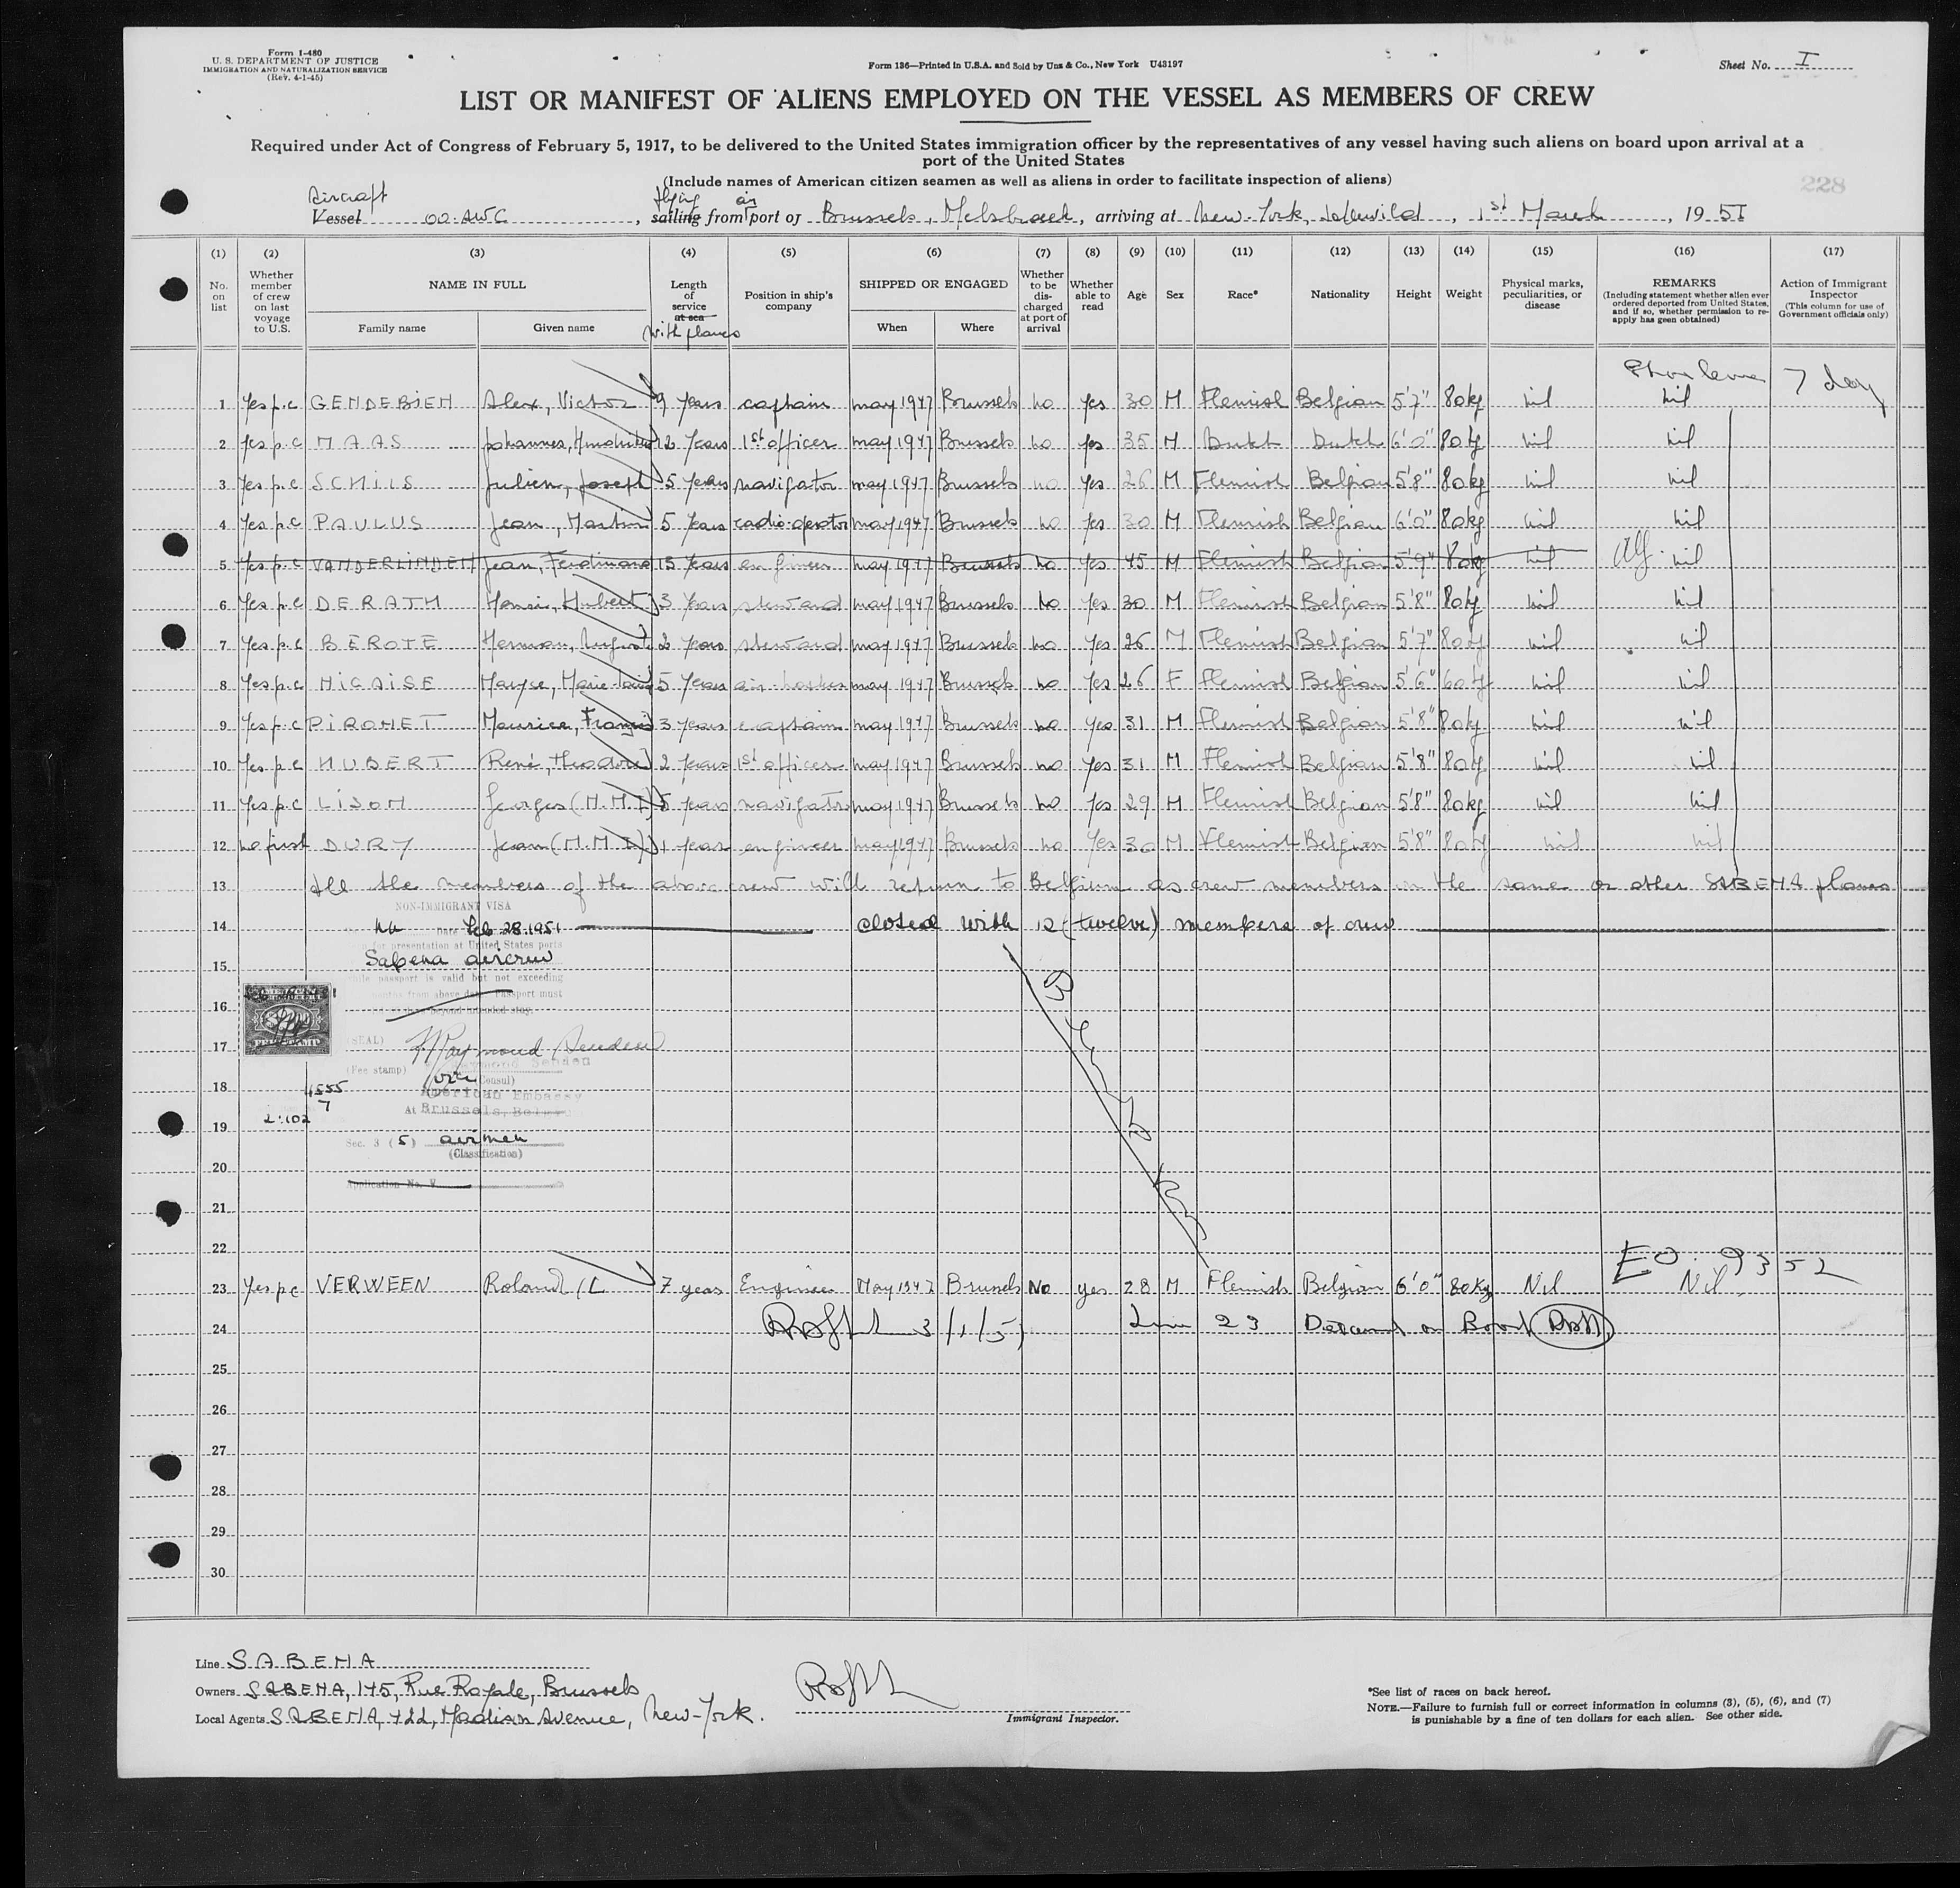 Form I-480
U. S. DEPARTMENT OF JUSTICE
IMMIGRATION AND NATURALIZATION SERVICE
(Rev. 4-1-45)
Form 136—Printed in U.S.A. and Sold by Unz & Co., New York U43197
Sheet No. I
LIST OR MANIFEST OF ALIENS EMPLOYED ON THE VESSEL AS MEMBERS OF CREW
Required under Act of Congress of February 5, 1917, to be delivered to the United States immigration officer by the representatives of any vessel having such aliens on board upon arrival at a
port of the United States
(Include names of American citizen seamen as well as aliens in order to facilitate inspection of aliens)
228
Aircraft flying air
Vessel OO-AWC, sailing from port of Brussels, Melsbroek, arriving at New-York, Idlewild, 1st March, 1951
(1) (2) (3) (4) (5) (6) (7) (8) (9) (10) (11) (12) (13) (14) (15) (16) (17)
No. on list
Whether member of crew on last voyage to U.S.
NAME IN FULL
Family name Given name
Length of service at sea
with planes
Position in ship's company
SHIPPED OR ENGAGED
When Where
Whether to be discharged at port of arrival
Whether able to read
Age
Sex
Race*
Nationality
Height
Weight
Physical marks, peculiarities, or disease
REMARKS
(Including statement whether alien ever ordered deported from United States, and if so, whether permission to re-apply has geen obtained)
Action of Immigrant Inspector
(This column for use of Government officials only)
Shore leave 7 day
1 Yes p.c GENDEBIEN Alex, Victor 9 Years captain may 1947 Brussels no Yes 30 M Flemish Belgian 5'7" 80kg nil nil
2 Yes p.c MAAS Johannes, 12 Years 1st officer may 1947 Brussels no Yes 35 M Dutch Dutch 6'0" 80kg nil nil
3 Yes p.c SCHILS Julien, Joseph 5 Years navigator may 1947 Brussels no Yes 26 M Flemish Belgian 5'8" 80kg nil nil
4 Yes p.c PAULUS Jean, Martin 5 Years radio-operator may 1947 Brussels no Yes 30 M Flemish Belgian 6'0" 80kg nil nil
5 Yes p.c VANDERLINDEN Jean, Ferdinand 15 Years engineer may 1947 Brussels no Yes 45 M Flemish Belgian 5'9" 80kg nil nil
6 Yes p.c DERATH Henri, Hubert 3 Years steward may 1947 Brussels no Yes 30 M Flemish Belgian 5'8" 80kg nil nil
7 Yes p.c BEROTE Herman, August 2 Years steward may 1947 Brussels no Yes 26 M Flemish Belgian 5'7" 80kg nil nil
8 Yes p.c NICAISE Maryse, Marie-Louise 5 Years air-hostess may 1947 Brussels no Yes 26 F Flemish Belgian 5'6" 60kg nil nil
9 Yes p.c PIRONET Maurice, François 3 Years captain may 1947 Brussels no Yes 31 M Flemish Belgian 5'8" 80kg nil nil
10 Yes p.c HUBERT René, Theodore 2 Years 1st officer may 1947 Brussels no Yes 31 M Flemish Belgian 5'8" 80kg nil nil
11 Yes p.c LISON Georges (N.M.I) 5 Years navigator may 1947 Brussels no Yes 29 M Flemish Belgian 5'8" 80kg nil nil
12 no first DURY Jean (N.M.I) 1 Year engineer may 1947 Brussels no Yes 30 M Flemish Belgian 5'8" 80kg nil nil
13 All the members of the above crew will return to Belgium as crew members on the same or other SABENA planes
NON-IMMIGRANT VISA
14 Date Feb 28 1951 closed with 12 (twelve) members of crew
for presentation at United States ports
15 Sabena aircrew
while passport is valid but not exceeding
months from above date. Passport must
16
beyond intended stay.
17 (SEAL) Raymond Senden
(Fee stamp) Raymond Senden
Vice (Consul)
18 4555 American Embassy
7 At Brussels, Belgium
19 2:102
Sec. 3 (5) airmen
(Classification)
20
Application No. V
21
22
EO. 9352
23 Yes p.c VERWEEN Roland (L 7 years Engineer May 1947 Brussels No yes 28 M Flemish Belgian 6'0" 80kg Nil Nil
24 3/1/51 Line 23 Detained on Board
25
26
27
28
29
30
Line SABENA
Owners SABENA, 145, Rue Royale, Brussels
Local Agents SABENA, 422, Madison Avenue, New-York.
Immigrant Inspector.
*See list of races on back hereof.
NOTE.—Failure to furnish full or correct information in columns (3), (5), (6), and (7)
is punishable by a fine of ten dollars for each alien. See other side.